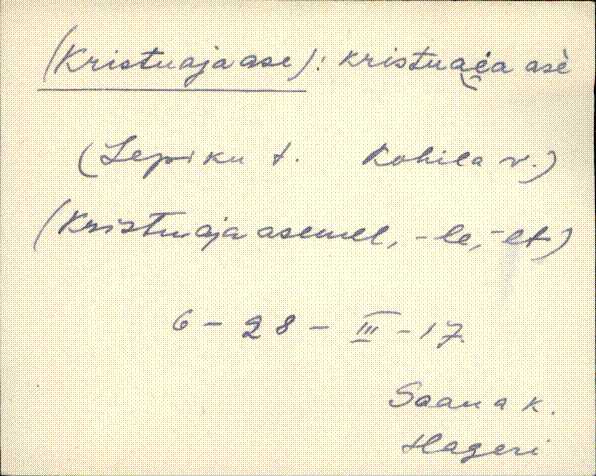 (Kristuaja ase): kristuaia asè
(Lepiku t. Kohila v.)
(Kristuaja asemel, -le, -lt)
6 - 28 - III - 17.
Saan a k.
Hageri